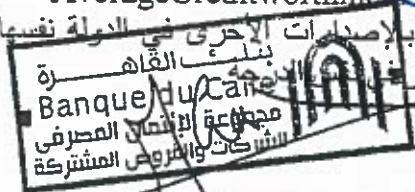 بالإصدارات الأخرى في الدولة نفسها
بنك القاهرة
Banque du Caire
مجموعة الائتمان المصرفى
للشركات والقروض المشتركة